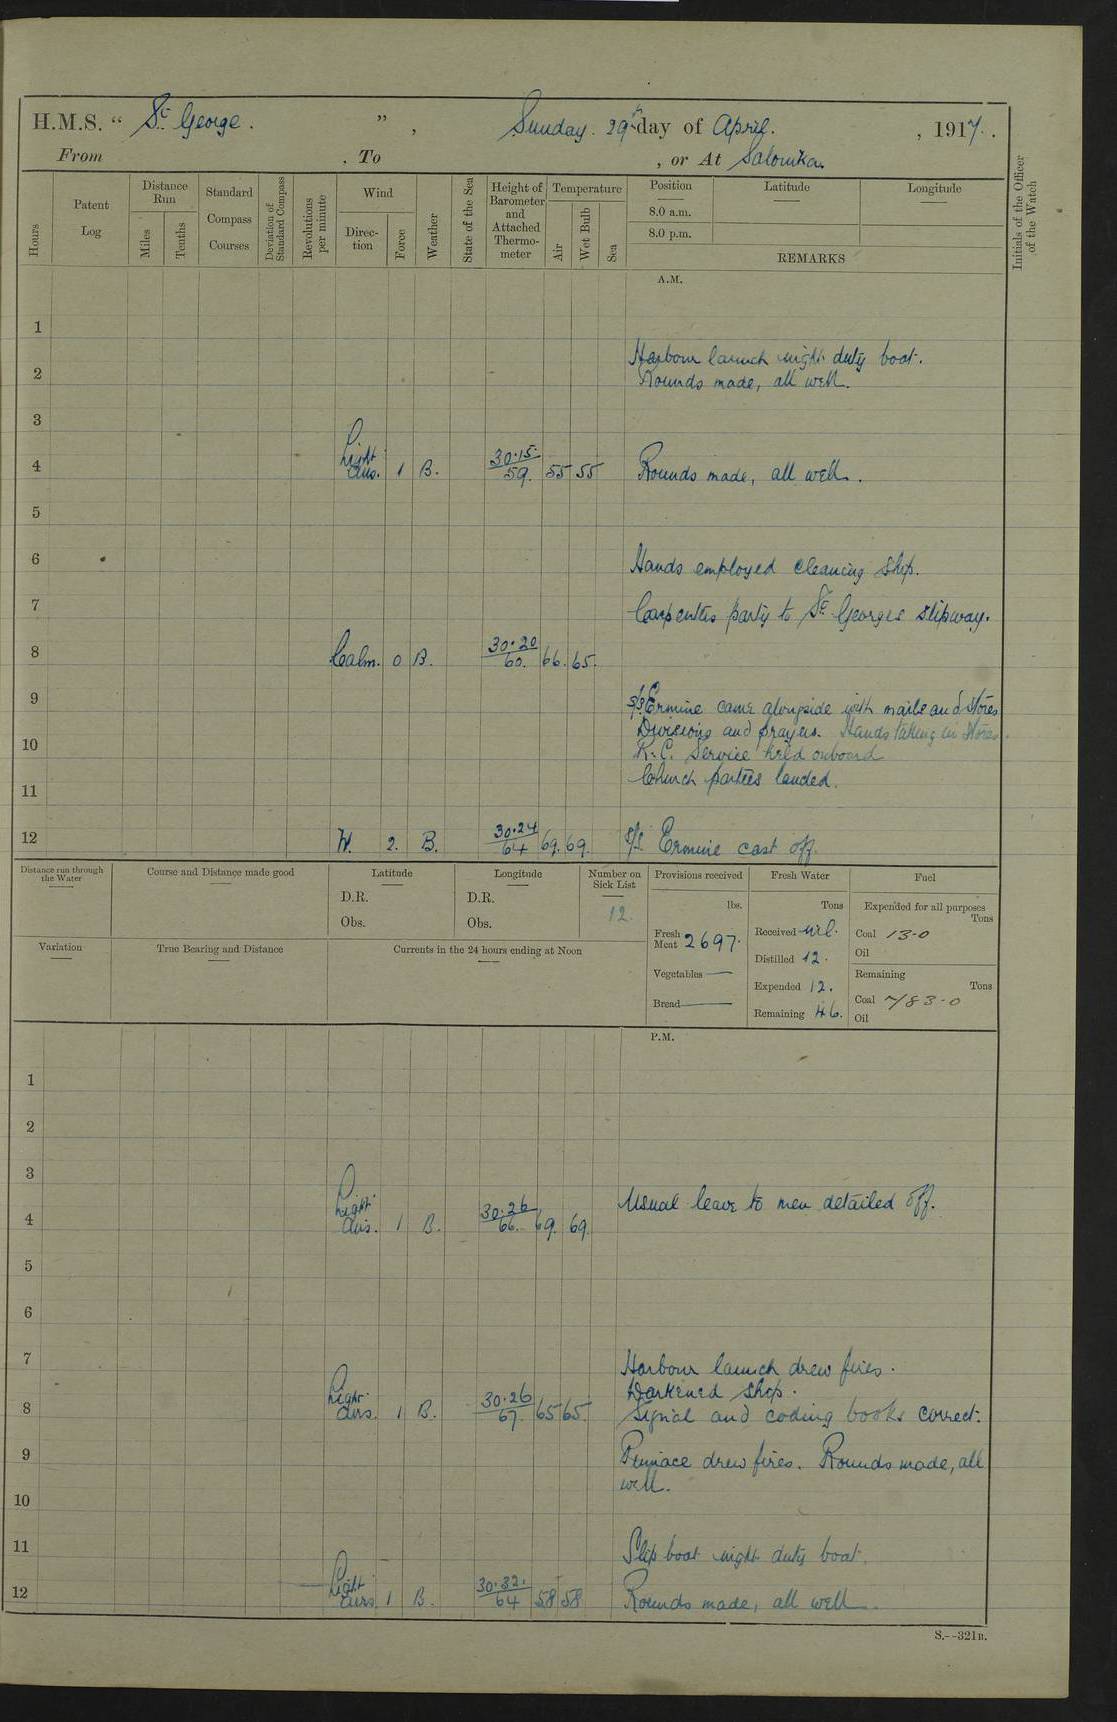 H.M.S. “ St George. ” , Sunday. 29th day of April. , 1917.
From , To , or At Salonika.
Hours
Patent Log
Distance Run
Miles
Tenths
Standard Compass Courses
Deviation of Standard Compass
Revolutions per minute
Wind
Direc-tion
Force
Weather
State of the Sea
Height of Barometer and Attached Thermo-meter
Temperature
Air
Wet Bulb
Sea
Position
8.0 a.m.
8.0 p.m.
Latitude
Longitude
REMARKS
Initials of the Officer of the Watch
A.M.
1
Harbour launch night duty boat.
2 Rounds made, all well.
3
4 Light airs. 1 B. 30.15 59. 55 55 Rounds made, all well.
5
6 Hands employed cleaning ship.
7 Carpenters party to St Georges slipway.
8 Calm. 0 B. 30.20 60. 66. 65.
9 S/S Ermine came alongside with mails and stores
Divisions and prayers. Hands taking in stores.
10 R.C. Service held onboard
Church parties landed.
11
12 W. 2. B. 30.24 64 69. 69. S/S. Ermine cast off.
Distance run through the Water
Course and Distance made good
Latitude
D.R.
Obs.
Longitude
D.R.
Obs.
Number on Sick List
12.
Variation
True Bearing and Distance
Currents in the 24 hours ending at Noon
Provisions received
lbs.
Fresh Meat 2697.
Vegetables —
Bread —
Fresh Water
Tons
Received Nil.
Distilled 12.
Expended 12.
Remaining 46.
Fuel
Expended for all purposes
Tons
Coal 13.0
Oil
Remaining
Tons
Coal 783.0
Oil
P.M.
1
2
3
4 Light airs. 1 B. 30.26 66. 69. 69. Usual leave to men detailed off.
5
6
7 Harbour launch drew fires.
Darkened ship.
8 Light airs. 1 B. 30.26 67. 65 65. Signal and coding books correct.
9 Pinnace drew fires. Rounds made, all
well.
10
11 Slip boat night duty boat.
12 Light airs 1 B. 30.32. 64 58 58 Rounds made, all well.
S.--321B.